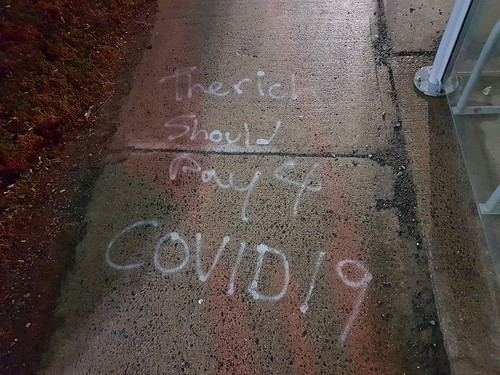 The rich
Should
Pay 4
COVID19